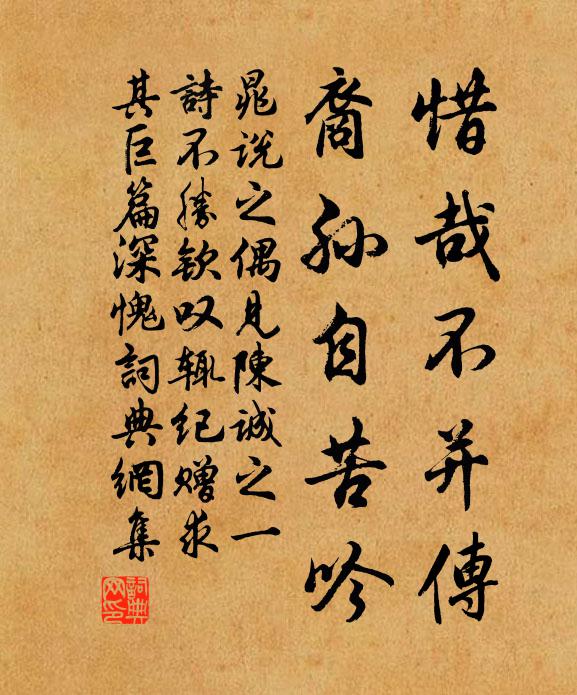 惜哉不并傳
裔孙自苦吟
晁說之偶見陳誠之一
詩不勝欽叹辄纪赠求
其巨篇深愧詞典網集
詞典网印